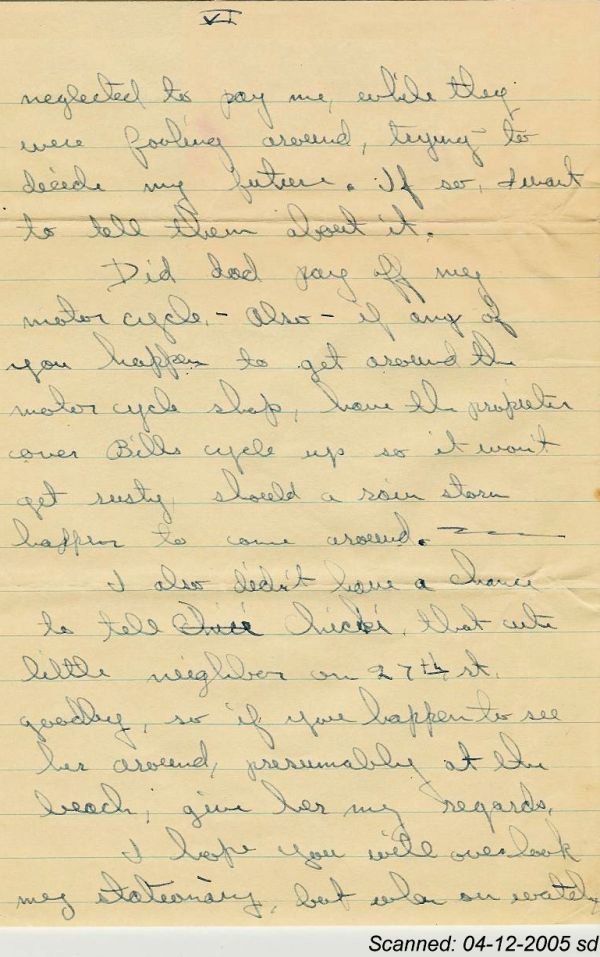 VI
neglected to pay me, while they
were fooling around, trying to
decide my future. If so, I want
to tell them about it.
Did dad pay off my
motor cycle. - Also - if any of
you happen to get around the
motor cycle shop, have the propieter
cover Bills cycle up so it won't
get rusty, should a rain storm
happen to come around.
I also did'nt have a chance
to tell Chicki, that cute
little neighbor on 27th st.
goodby, so if you happen to see
her around, presumably at the
beach, give her my regards.
I hope you will overlook
my stationary, but when on watch,
Scanned: 04-12-2005 sd